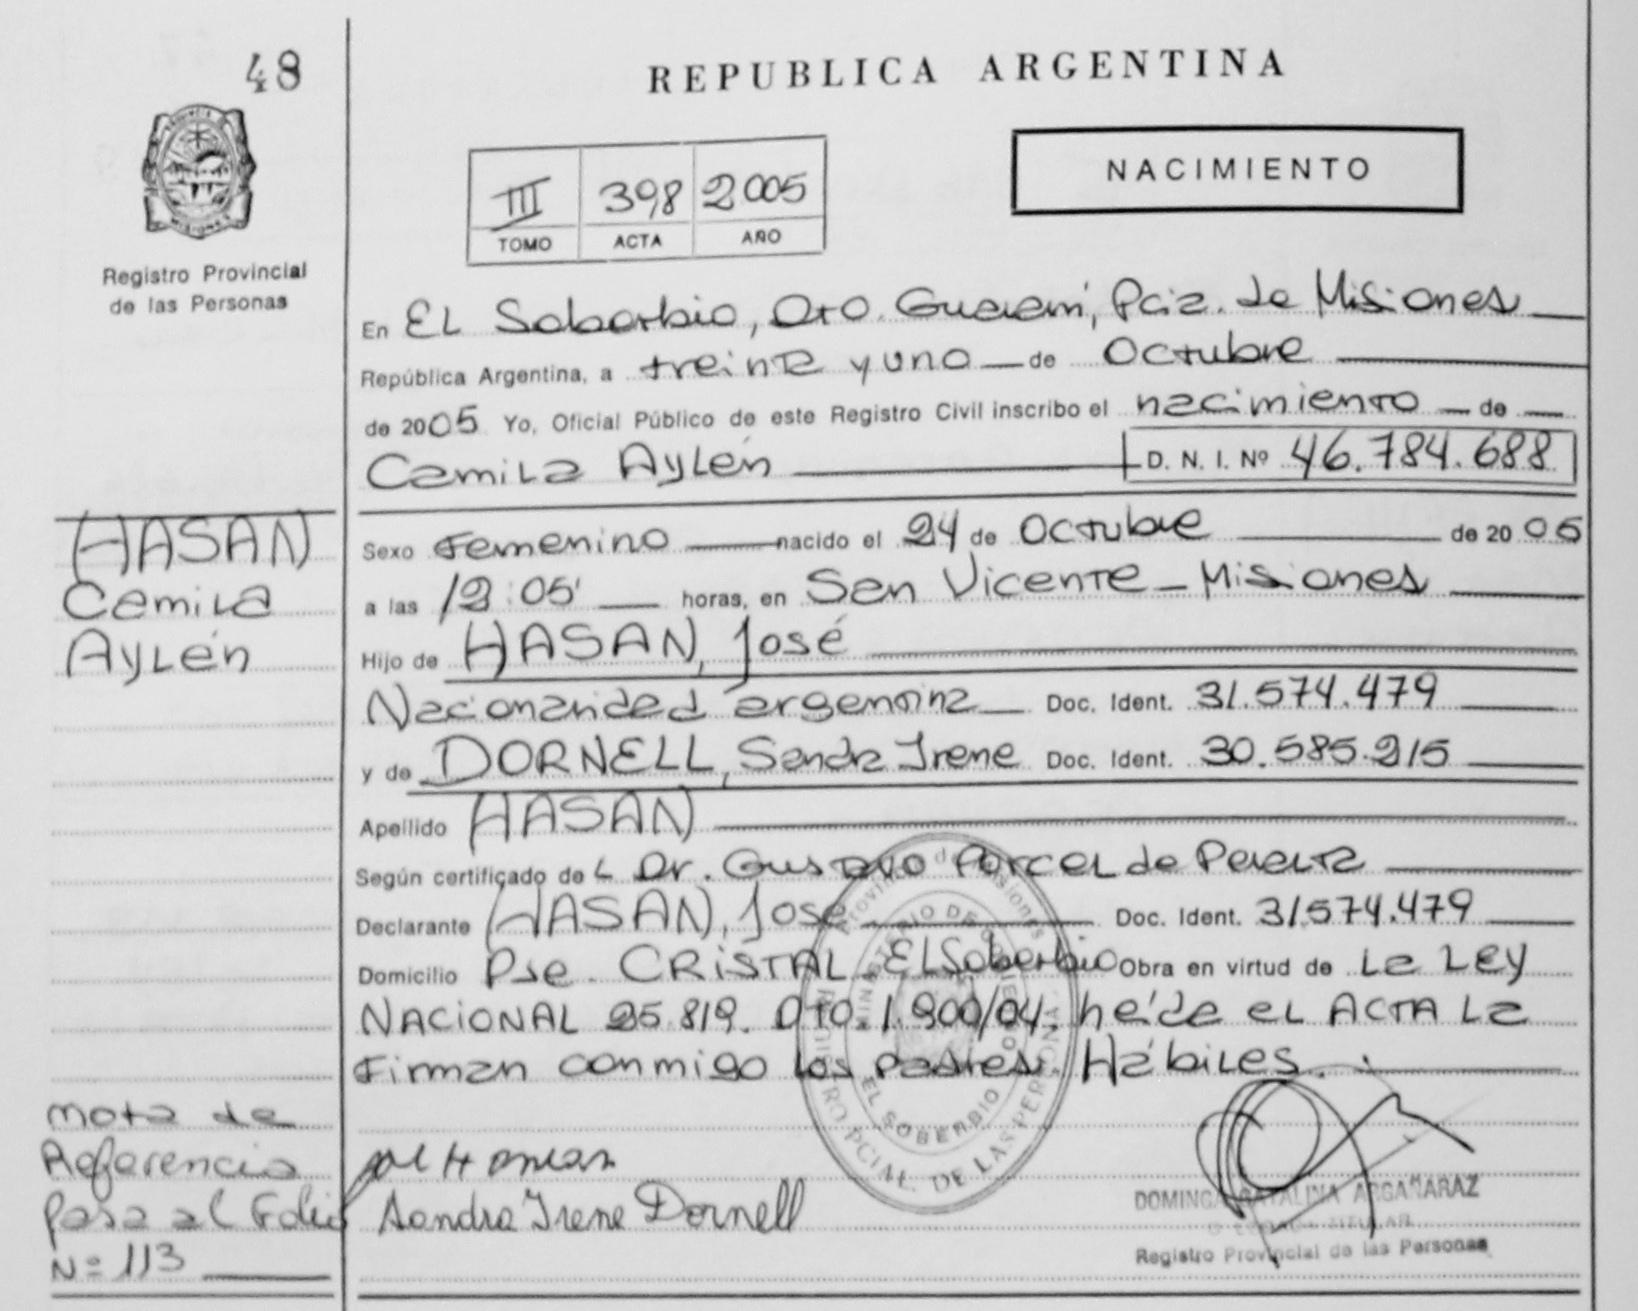 48
REPUBLICA ARGENTINA
NACIMIENTO
III 398 2005
TOMO ACTA AÑO
Registro Provincial
de las Personas
En EL Soberbio, Dto. Guaraní, Pcia. de Misiones
República Argentina, a treinta y uno de Octubre
de 2005 Yo, Oficial Público de este Registro Civil inscribo el nacimiento de
Camila Aylén D. N. I. Nº 46.784.688
HASAN
Camila
Aylén
Sexo Femenino nacido el 24 de Octubre de 2005
a las 12:05' horas, en San Vicente - Misiones
Hijo de HASAN, José
Nacionalidad argentina Doc. Ident. 31.574.479
y de DORNELL, Sandra Irene Doc. Ident. 30.585.215
Apellido HASAN
Según certificado de L Dr. Gustavo Porcel de Peralta
Declarante HASAN, José Doc. Ident. 31.574.479
Domicilio Pje. CRISTAL El Soberbio Obra en virtud de La Ley
NACIONAL 25.819. Dto. 1.900/04; leída el ACTA La
Firman conmigo los padres Hábiles.
Nota de
Referencia
pasa al Folio
Nº 113
Sandra Irene Dornell
DOMINGA CATALINA ARGAÑARAZ
Registro Provincial de las Personas
Provincia de Misiones
MINISTERIO DE GOBIERNO
EL SOBERBIO
REGISTRO PCIAL. DE LAS PERSONAS